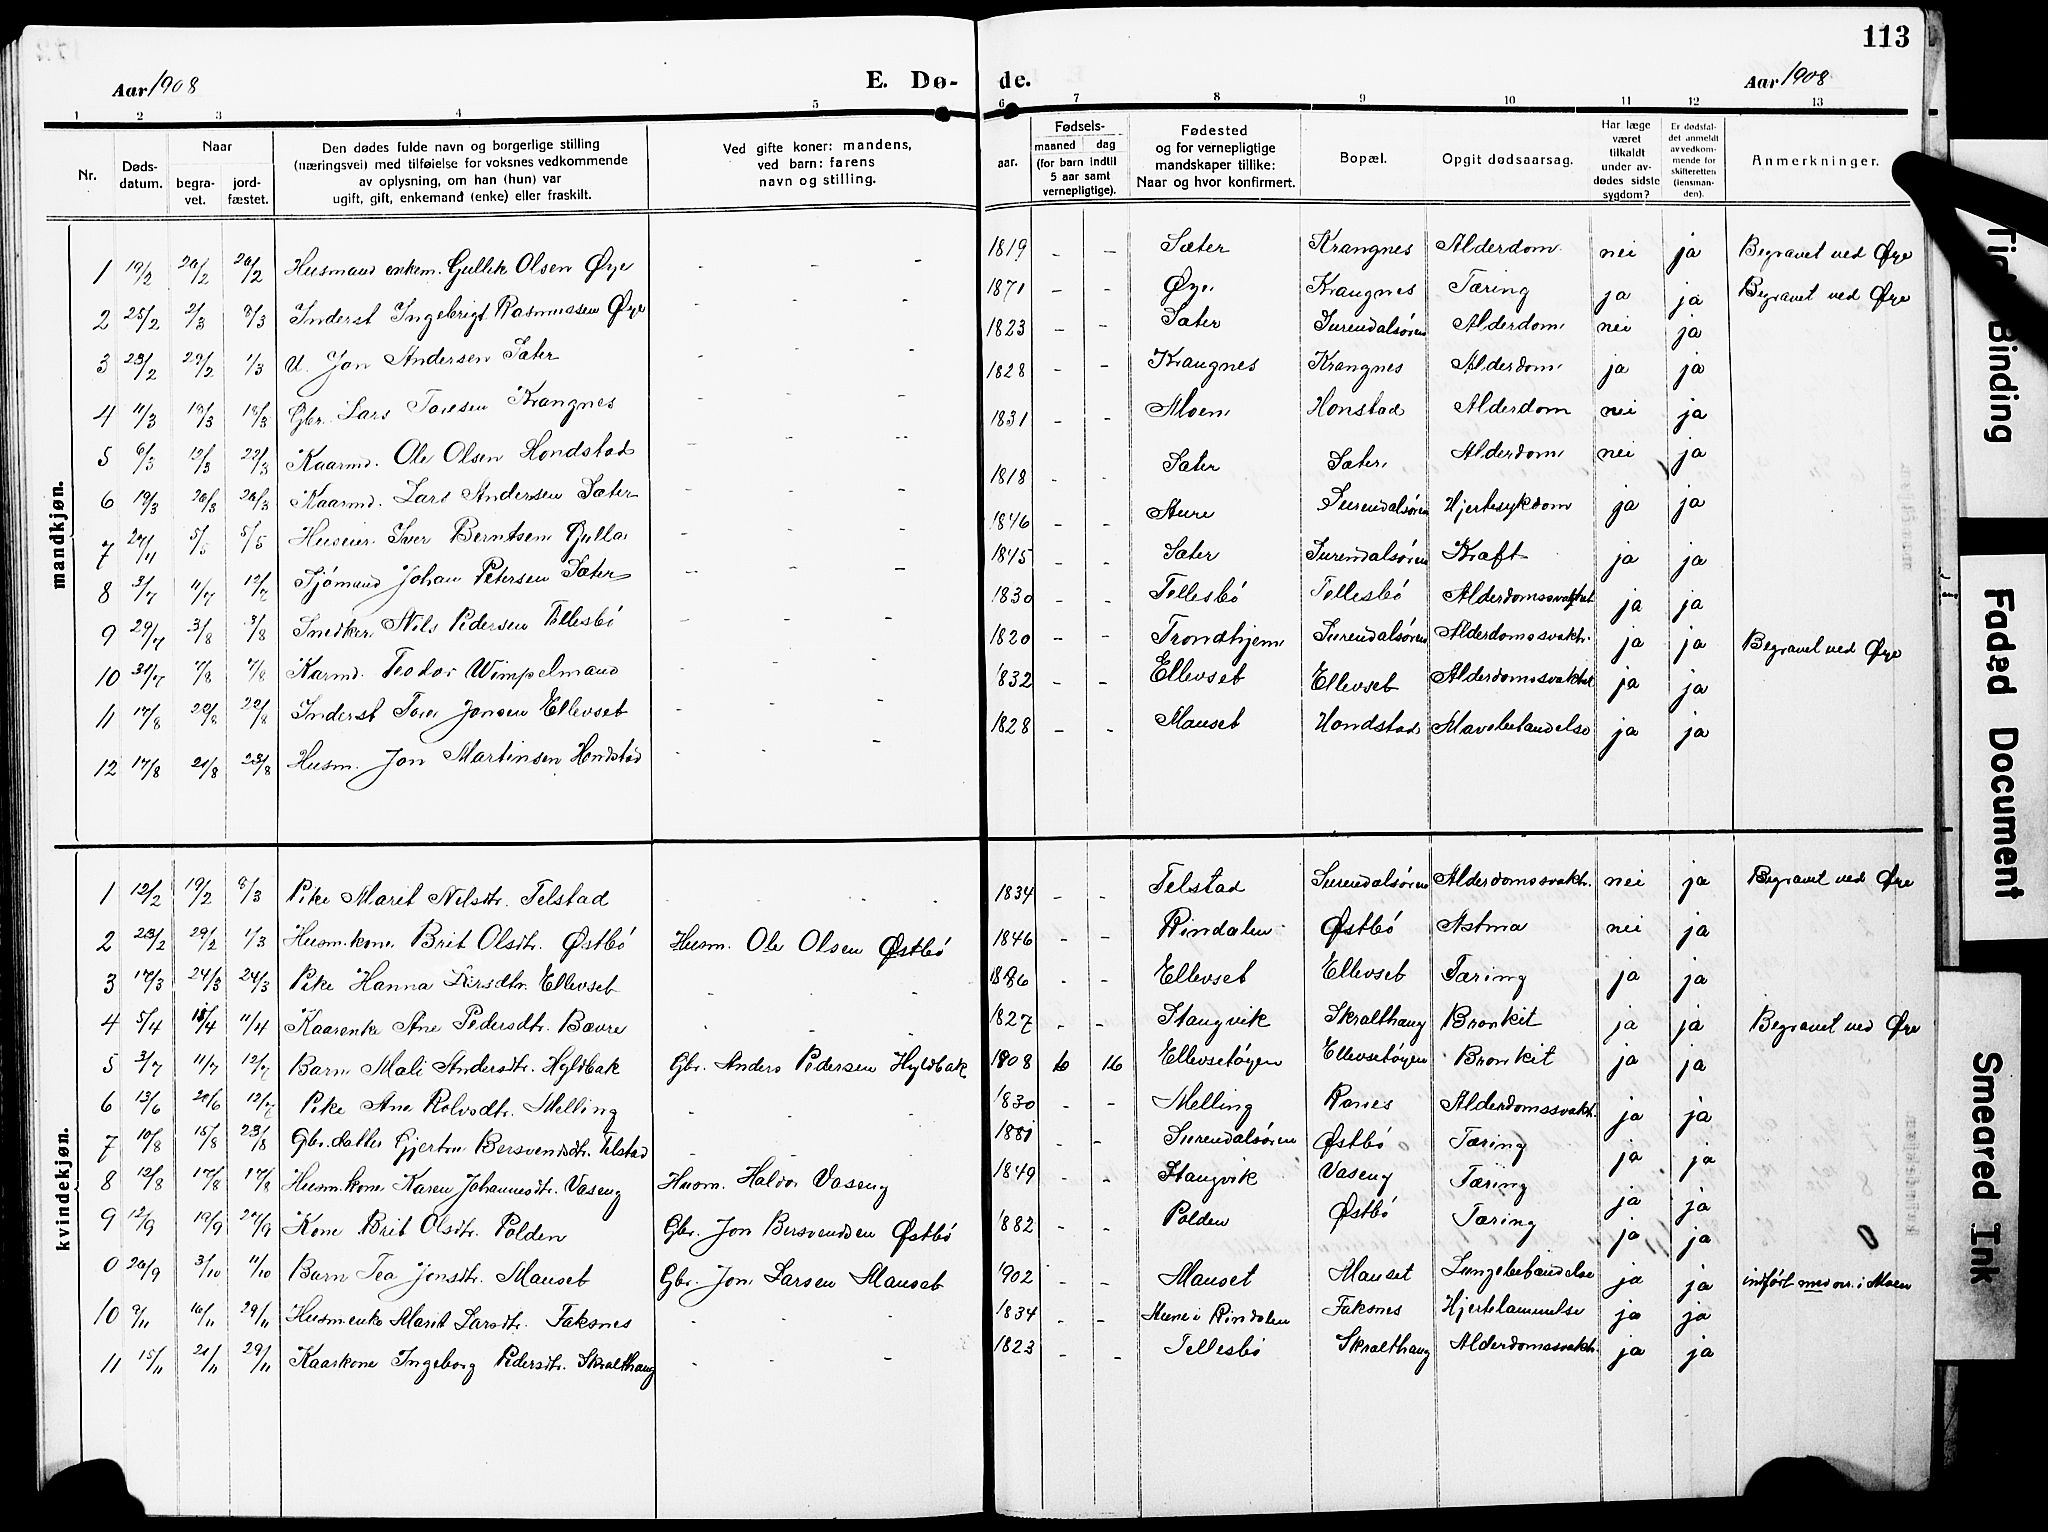 113
Aar 1908 E. Dø- de. Aar 1908
1 2 3 4 5 6 7 8 9 10 11 12 13
Nr. Døds-datum. Naar begra-vet. jord-fæstet. Den dødes fulde navn og borgerlige stilling (næringsvei) med tilføielse for voksnes vedkommende av oplysning, om han (hun) var ugift, gift, enkemand (enke) eller fraskilt. Ved gifte koner: mandens, ved barn: farens navn og stilling. aar. Fødsels- maaned dag (for barn indtil 5 aar samt vernepligtige). Fødested og for vernepligtige mandskaper tillike: Naar og hvor konfirmert. Bopæl. Opgit dødsaarsag. Har læge været tilkaldt under av-dødes sidste sygdom? Er dødsfal-det anmeldt av vedkom-mende for skifteretten (lensman-den). Anmerkninger.
mandkjøn.
1 19/2 20/2 20/2 Husmand enkem. Gullik Olsen Øye - - 1819 - - Sæter Krangnes Alderdom nei ja Begravet ved Øye
2 25/2 2/3 8/3 Inderst Ingebrigt Rasmussen Øye - - 1871 - - Øye Krangnes Tæring ja ja Begravet ved Øye
3 23/2 29/2 1/3 U. Jon Andersen Sæter - - 1823 - - Sæter Surendalsøren Alderdom nei ja
4 11/3 19/3 18/3 Gbr. Lars Toresen Krangnes - - 1828 - - Krangnes Krangnes Alderdom ja ja
5 6/3 19/3 22/3 Kaarmd. Ole Olsen Hondstad - - 1831 - - Moen Honstad Alderdom nei ja
6 19/3 20/3 20/3 Kaarmd. Lars Andersen Sæter - - 1818 - - Sæter Sæter Alderdom nei ja
7 27/4 5/5 5/5 Huseier Iver Berntsen Gulla - - 1846 - - Sture Surendalsøren Hjertesykdom ja ja
8 3/7 11/7 12/7 Sjömand Johan Petersen Sæter - - 1845 - - Sæter Surendalsøren Kræft ja ja
9 29/7 3/8 3/8 Snedker Nils Pedersen Tellesbö - - 1830 - - Tellesbö Tellesbö Alderdomssvakhet ja ja
10 31/7 7/8 7/8 Karmd. Teodor Wimpelmand - - 1820 - - Trondhjem Surendalsøren Alderdomssvakh. ja ja Begravet ved Øye
11 17/8 20/8 22/8 Inderst Tore Jonsen Ellevset - - 1832 - - Ellevset Ellevset Alderdomssvakhet ja ja
12 17/8 21/8 23/8 Husm. Jon Martinsen Hondstad - - 1828 - - Mauset Hondstad Mavebetændelse ja ja
kvindekjøn.
1 12/2 19/2 8/3 Pike Marit Nilsdtr. Telstad - - 1834 - - Telstad Surendalsøren Alderdomssvakh. nei ja Begravet ved Øye
2 23/2 29/2 1/3 Husm.kone Brit Olsdtr. Østbö Husm. Ole Olsen Østbö 1846 - - Rindalen Østbö Astma nei ja
3 17/3 24/3 24/3 Pike Hanna Larsdtr. Ellevset - - 1886 - - Ellevset Ellevset Tæring ja ja
4 5/4 15/4 11/4 Kaarenke Ane Pedersdtr. Bævre - - 1827 - - Stangvik Skralthaug Bronkit ja ja Begravet ved Øye
5 3/7 11/7 12/7 Barn Mali Andersdtr. Hyldbak Gbr. Anders Pedersen Hyldbak 1908 6 16 Ellevsetöyen Ellevsetöyen Bronkit ja ja
6 13/6 20/6 12/7 Pike Ane Rolvsdtr. Melling - - 1830 - - Melling Ranes Alderdomssvakh. ja ja
7 10/8 15/8 23/8 Gbr.datter Gjertru Bersvendsdtr. Telstad - - 1881 - - Surendalsøren Østbö Tæring ja ja
8 12/8 17/8 17/8 Husm.kone Karen Johannesdtr. Vaseng Husm. Haldor Vaseng 1849 - - Stangvik Vaseng Tæring ja ja
9 12/9 19/9 20/9 Kone Brit Olsdtr. Polden Gbr. Jon Bersvendsen Østbö 1882 - - Polden Østbö Tæring ja ja
0 20/9 3/10 11/10 Barn Tea Jonsdtr. Mauset Gbr. Jon Larsen Mauset 1902 - - Mauset Mauset Lungebetændelse ja ja indført med nr. i Moen
10 9/11 16/11 29/11 Husm.enke Marit Larsdtr. Faksnes - - 1834 - - i Rindalen Faksnes Hjertelammelse ja ja
11 15/11 21/11 29/11 Kaarkone Ingeborg Pedersdtr. Skralthaug - - 1823 - - Tellesbö Skralthaug Alderdomssvakh. ja ja
Binding
Faded Document
Smeared Ink